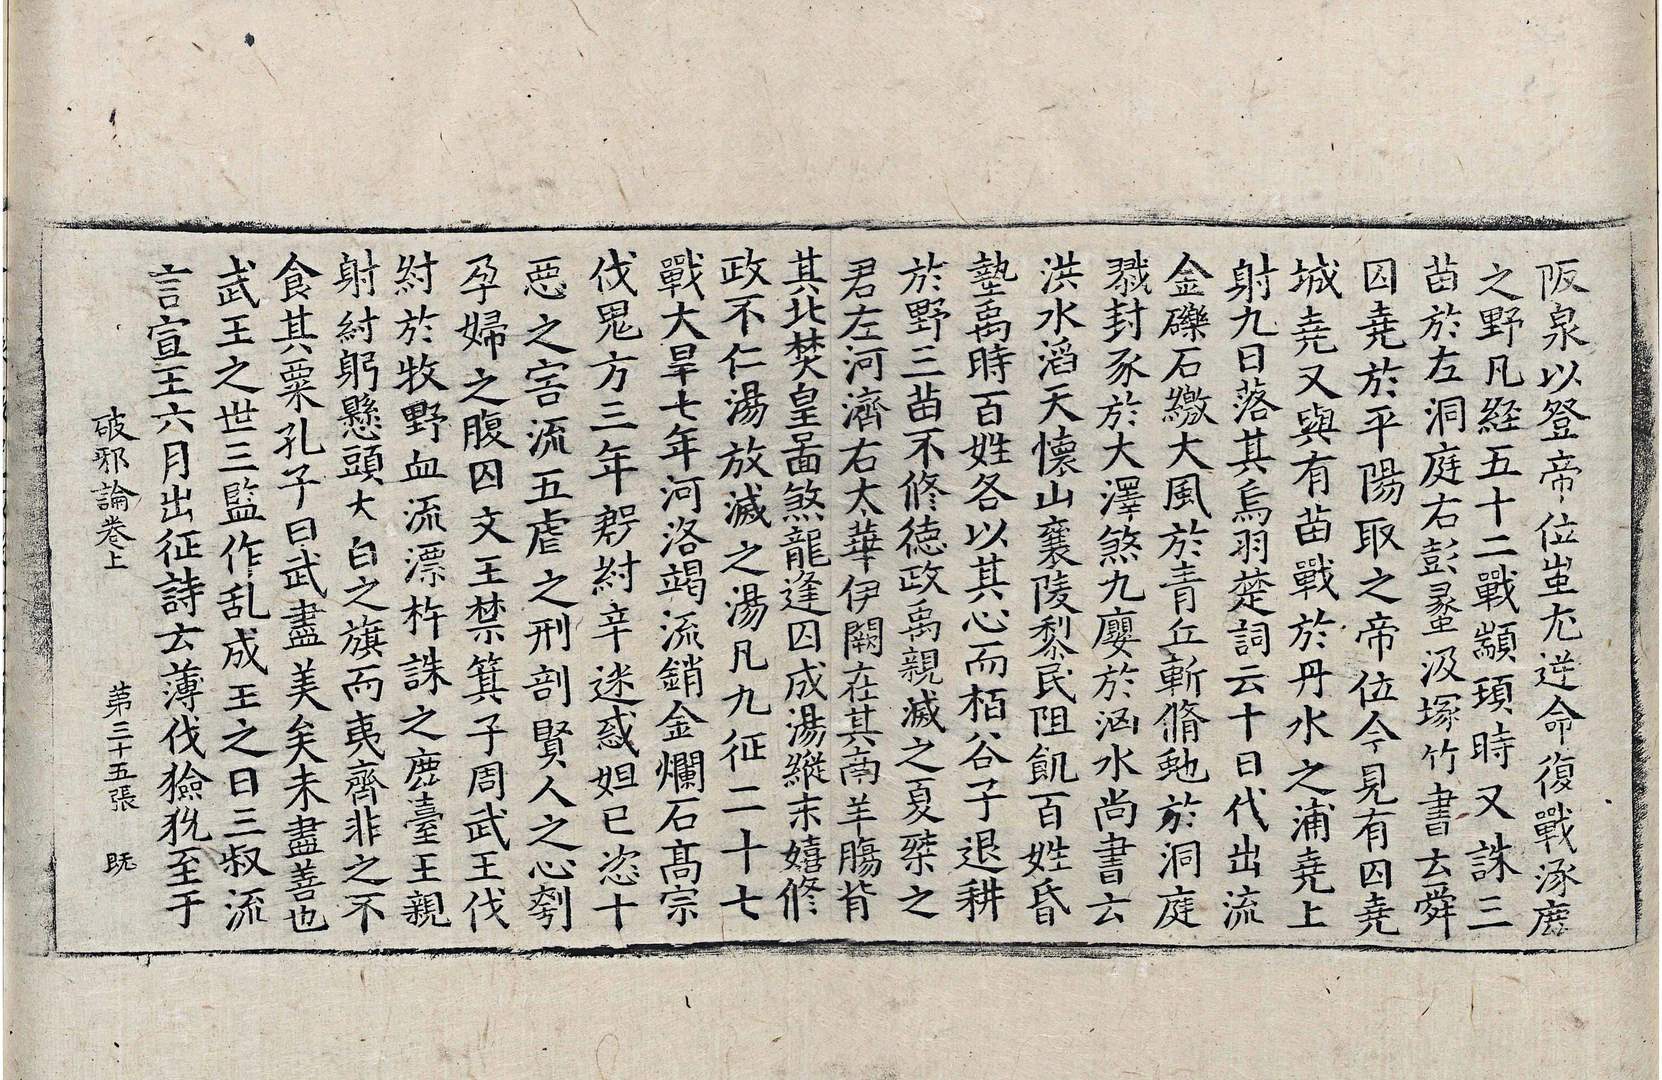 阪泉以登帝位蚩尤逆命復戰涿鹿
之野凡経五十二戰顓頊時又誅三
苗於左洞庭右彭蠡汲塚竹書云舜
囚堯於平陽取之帝位今見有囚堯
城堯又與有苗戰於丹水之浦堯上
射九日落其烏羽楚詞云十日代出流
金礫石繳大風於青丘斬脩虵於洞庭
戮封豕於大澤煞九嬰於洶水尚書云
洪水滔天懷山襄陵黎民阻飢百姓昏
墊禹時百姓各以其心而栢谷子退耕
於野三苗不修德政禹親滅之夏桀之
君左河濟右太華伊闕在其南羊膓背
其北焚皇啚煞龍逢囚成湯縱末嬉修
政不仁湯放滅之湯凡九征二十七
戰大旱七年河洛竭流銷金爛石髙宗
伐鬼方三年
紂辛迷惑妲己恣十
惡之害流五虐之刑剖賢人之心刳
孕婦之腹囚文王禁箕子周武王伐
紂於牧野血流漂杵誅之鹿臺王親
射紂躬懸頭大白之旗而夷齊非之不
食其粟孔子曰武盡美矣未盡善也
武王之世三監作乱成王之日三叔流
言宣王六月出征詩云薄伐獫狁至于
破邪論卷上 第三十五張 旣